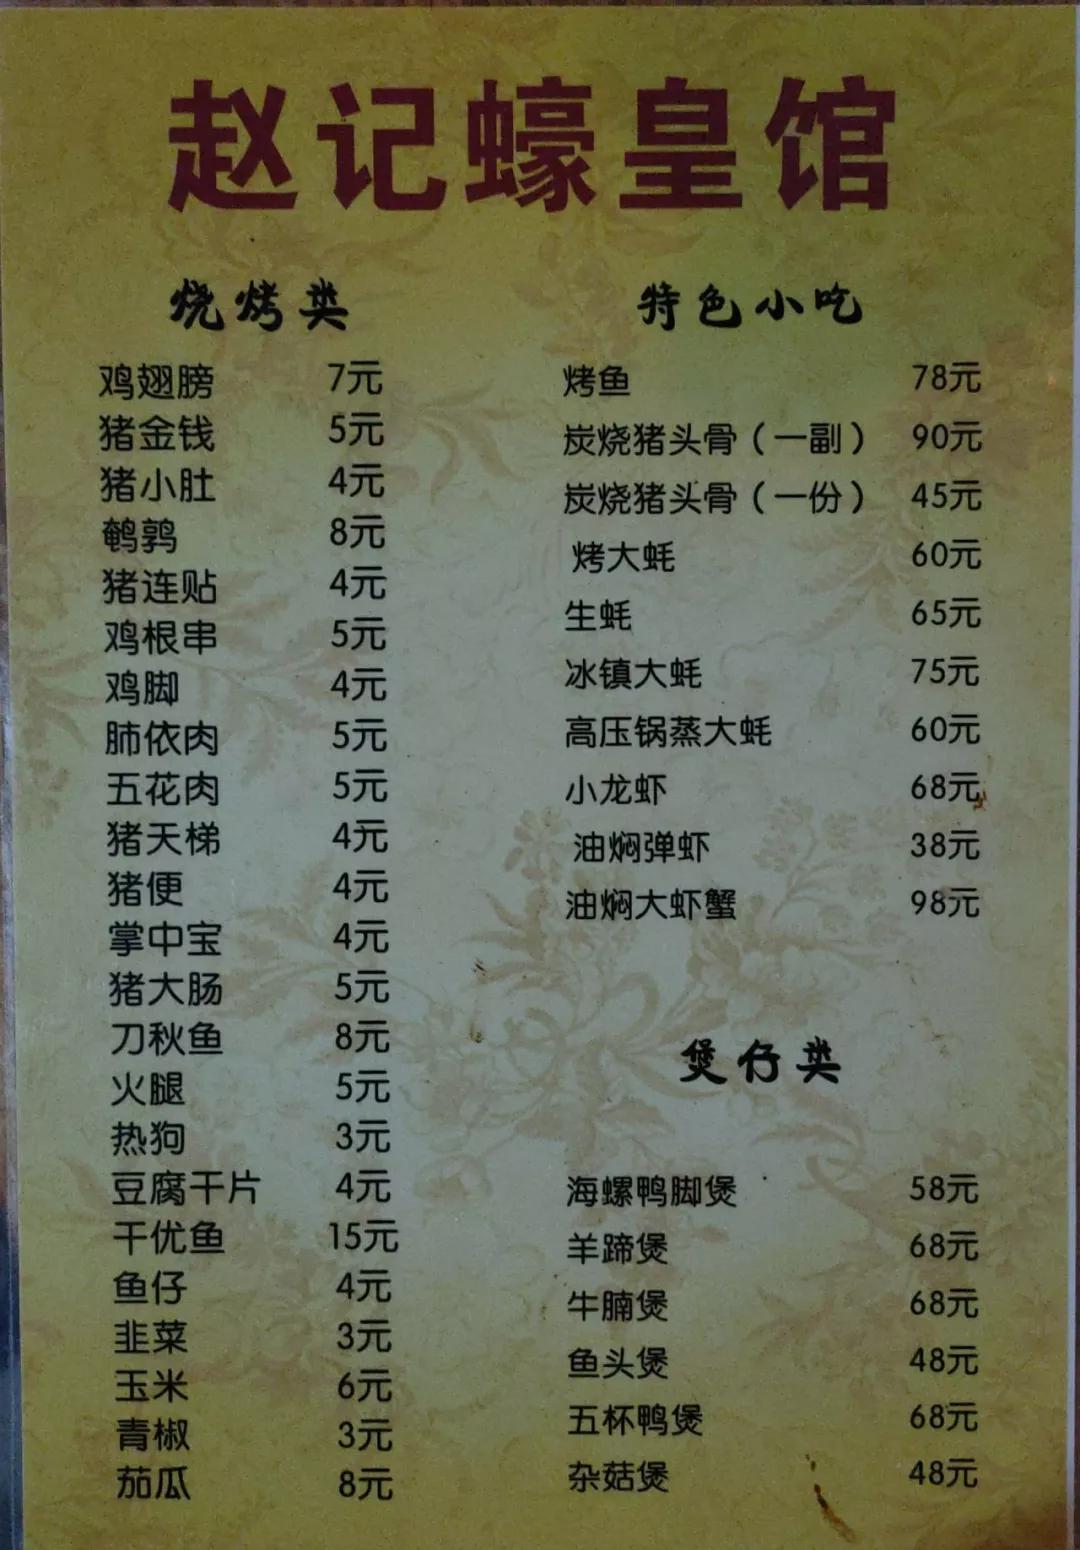 赵记蠔皇馆
烧烤类
鸡翅膀 7元
猪金钱 5元
猪小肚 4元
鹌鹑 8元
猪连贴 4元
鸡根串 5元
鸡脚 4元
肺依肉 5元
五花肉 5元
猪天梯 4元
猪便 4元
掌中宝 4元
猪大肠 5元
刀秋鱼 8元
火腿 5元
热狗 3元
豆腐干片 4元
干优鱼 15元
鱼仔 4元
韭菜 3元
玉米 6元
青椒 3元
茄瓜 8元
特色小吃
烤鱼 78元
炭烧猪头骨（一副） 90元
炭烧猪头骨（一份） 45元
烤大蚝 60元
生蚝 65元
冰镇大蚝 75元
高压锅蒸大蚝 60元
小龙虾 68元
油焖弹虾 38元
油焖大虾蟹 98元
煲仔类
海螺鸭脚煲 58元
羊蹄煲 68元
牛腩煲 68元
鱼头煲 48元
五杯鸭煲 68元
杂菇煲 48元